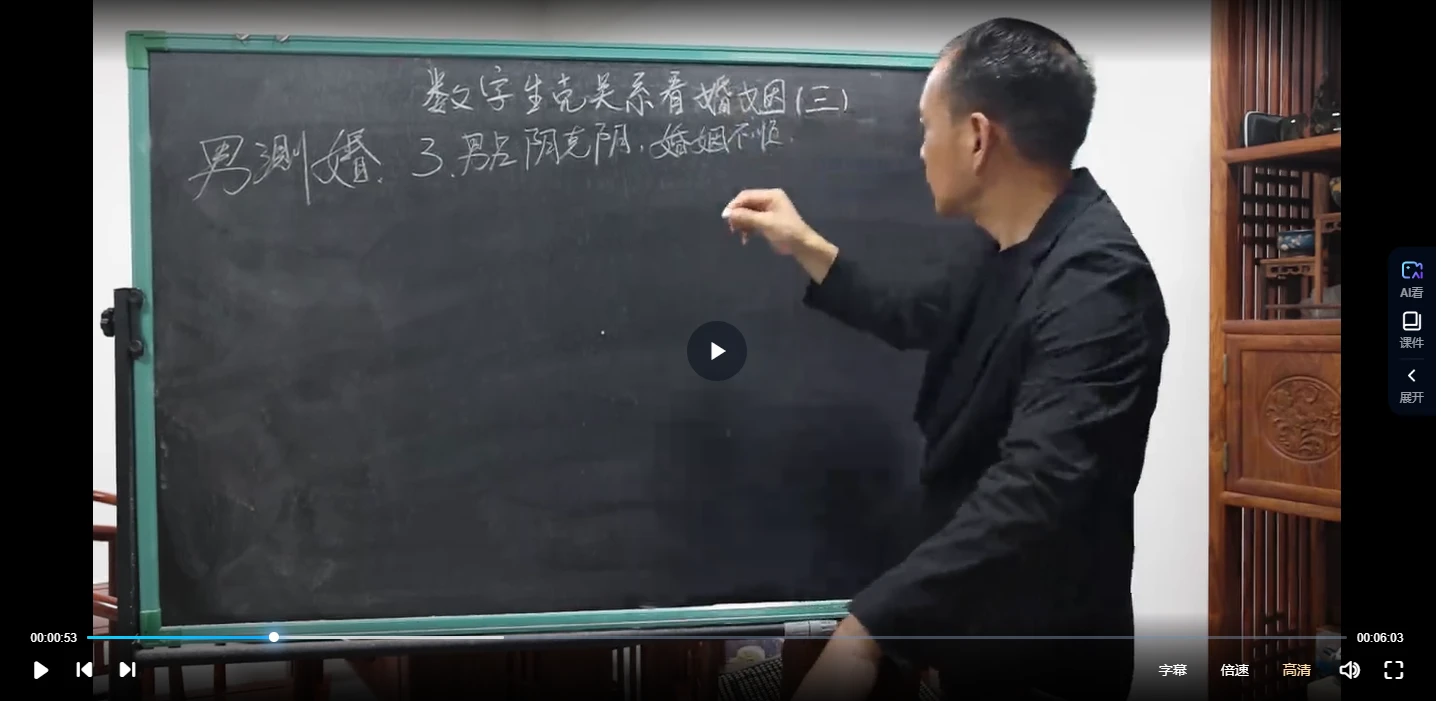 数字生克关系看婚姻(三)
男测婚. 3.男占阴克阴,婚姻不顺.
AI看
课件
展开
00:00:53
00:06:03
字幕
倍速
高清